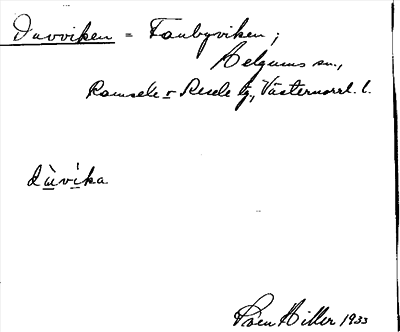 Duvviken = Fanbyviken;
Helgums sn.,
Ramsele o Resele tg, Västernorrl. l.
dùvìka
Sven Hiller 1933